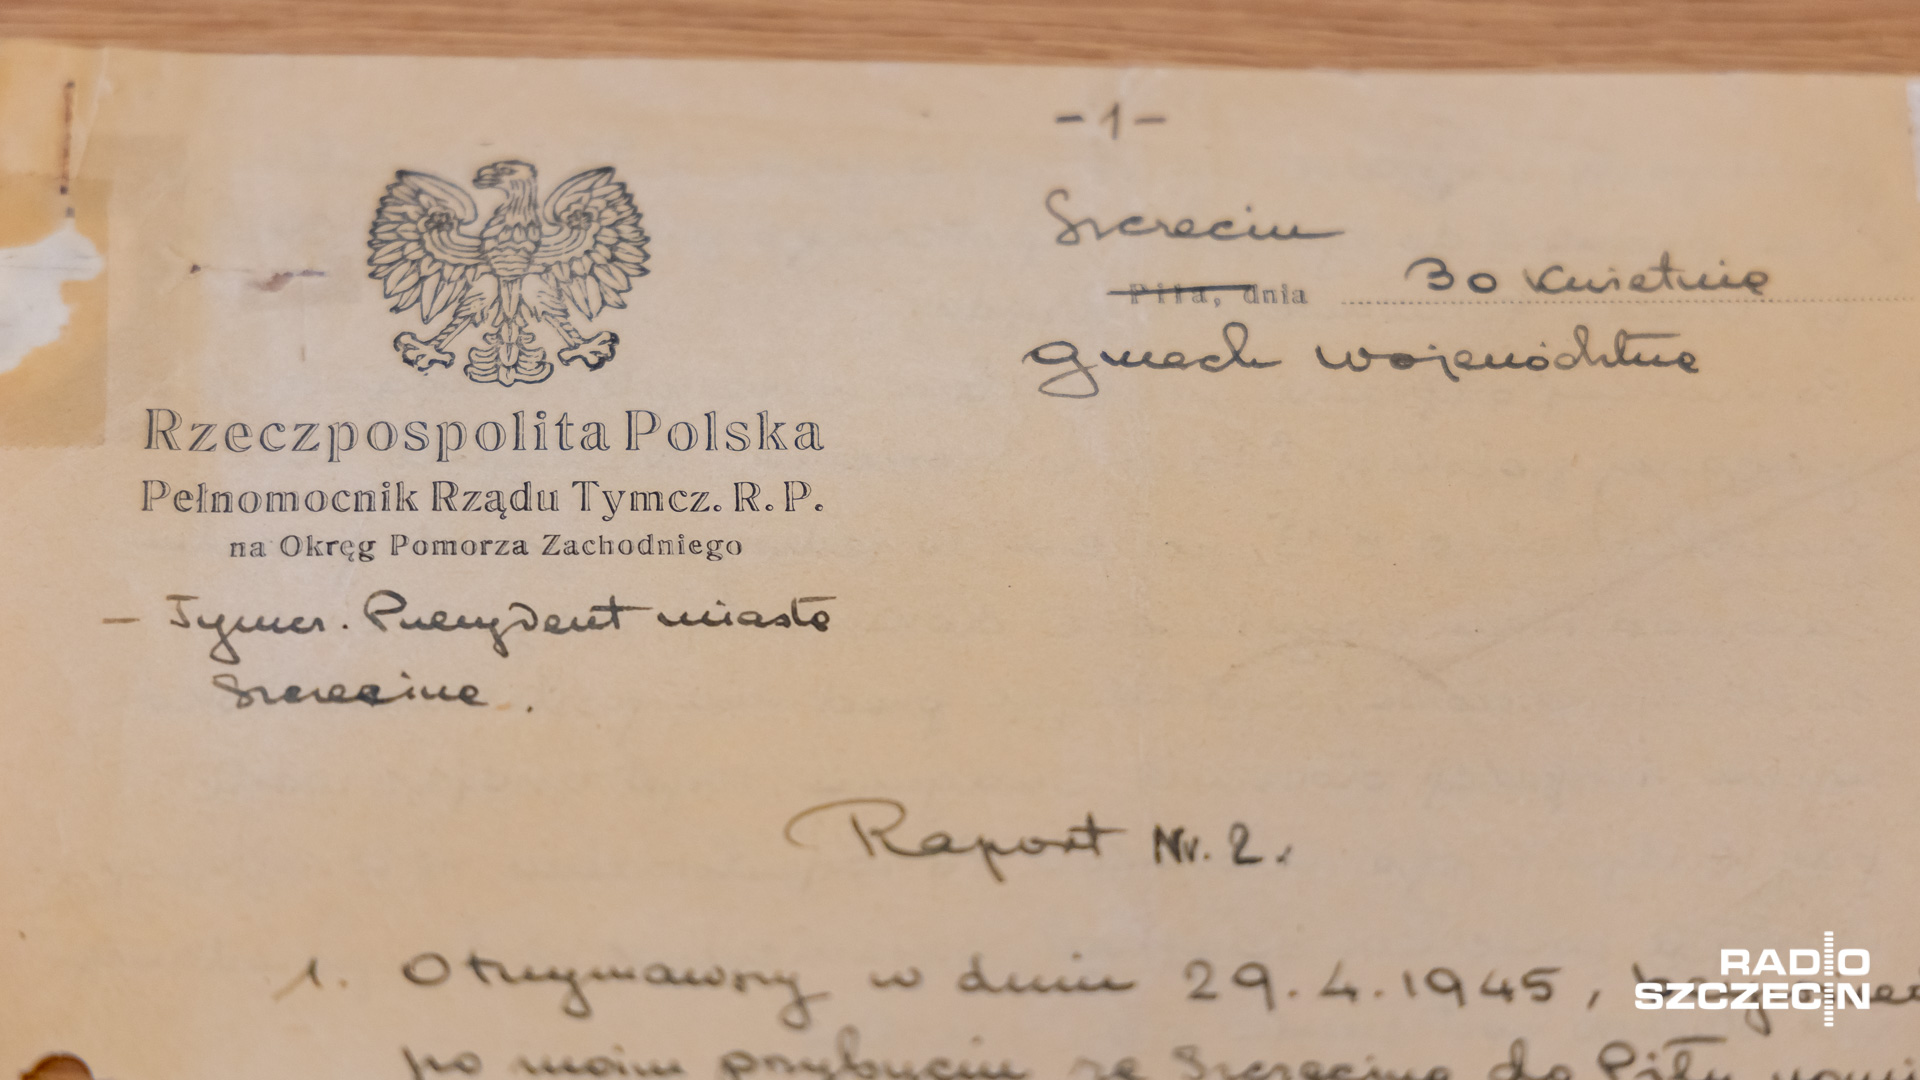 - 1 -
Szczecin
Piła, dnia 30 kwietnia
Gmach województwa
Rzeczpospolita Polska
Pełnomocnik Rządu Tymcz. R. P.
na Okręg Pomorza Zachodniego
- Tymcz. Prezydent miasta
Szczecina.
Raport Nr. 2.
1. Otrzymawszy w dniu 29.4.1945,
po moim przybyciu ze Szczecina do Piły
RADIO
SZCZECIN